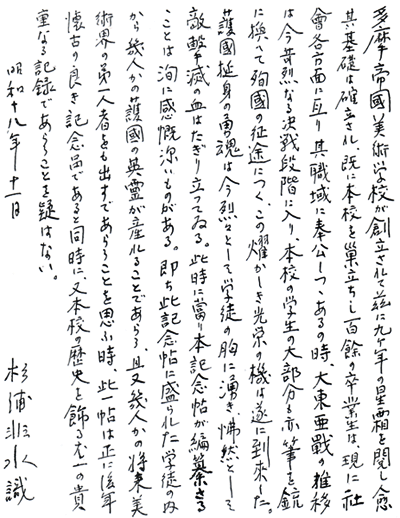 多摩帝國美術学校が創立されて茲に九ヶ年の星霜を閲し愈
其基礎は確立され、既に本校を巣立ちし百餘の卒業生は、現に社
會各方面に亙り其職域に奉公しつゝあるの時、大東亜戰の推移
は今苛烈なる決戦段階に入り、本校の学生の大部分も亦筆を銃
に換へて殉國の征途につく、この燿かしき光栄の機は遂に到来した。
護國挺身の勇魂は今烈々として学徒の胸に湧き、怫然として
敵撃滅の血はたぎり立つてゐる。此時に當り本記念帖が編纂さる
ことは洵に感慨深いものがある。即ち此記念帖に盛られた学徒の内
から幾人かの護國の英霊が産れることであらう、且又幾人かの将来美
術界の第一人者をも出すであらうことを思ふ時、此一帖は正に後年
懐古の良き記念品であると同時に、又本校の歴史を飾る尤一の貴
重なる記録であらうことを疑はない。
昭和十八年十一日
杉浦非水識